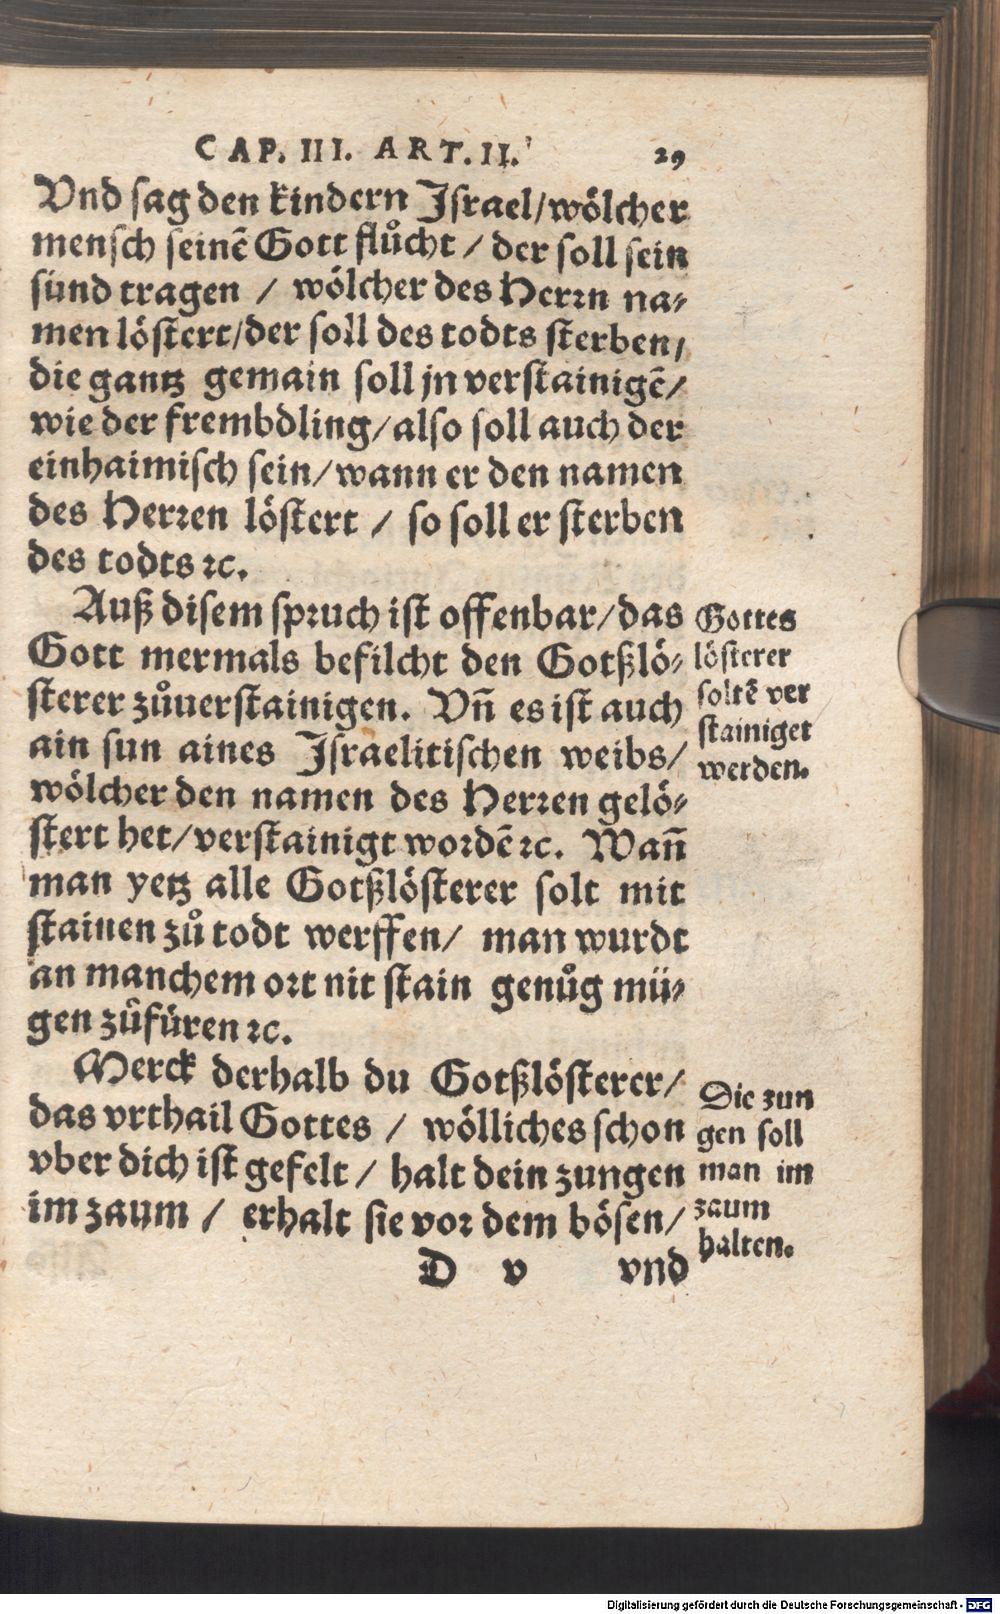 CAP. III. ART. II. 29
Vnd sag den kindern Israel/wölcher
mensch seinē Gott flůcht / der soll sein
sünd tragen / wölcher des Herrn na⸗
men löstert/der soll des todts sterben/
die gantz gemain soll jn verstainigē/
wie der frembdling/also soll auch der
einhaimisch sein/wann er den namen
des Herren löstert / so soll er sterben
des todts ꝛc.
Auß disem spruch ist offenbar/das
Gott mermals befilcht den Gotßlö⸗
sterer zůuerstainigen. Vñ es ist auch
ain sun aines Israelitischen weibs/
wölcher den namen des Herren gelö⸗
stert het/verstainigt wordē ꝛc. Wañ
man yetz alle Gotßlösterer solt mit
stainen zů todt werffen/ man wurdt
an manchem ort nit stain genůg mü⸗
gen zůfüren ꝛc.
Merck derhalb du Gotßlösterer/
das vrthail Gottes / wölliches schon
vber dich ist gefelt / halt dein zungen
im zaum / erhalt sie vor dem bösen/
D v vnd
Gottes
lösterer
soltē ver
stainiget
werden.
Die zun
gen soll
man im
zaum
halten.
Digitalisierung gefördert durch die Deutsche Forschungsgemeinschaft - DFG